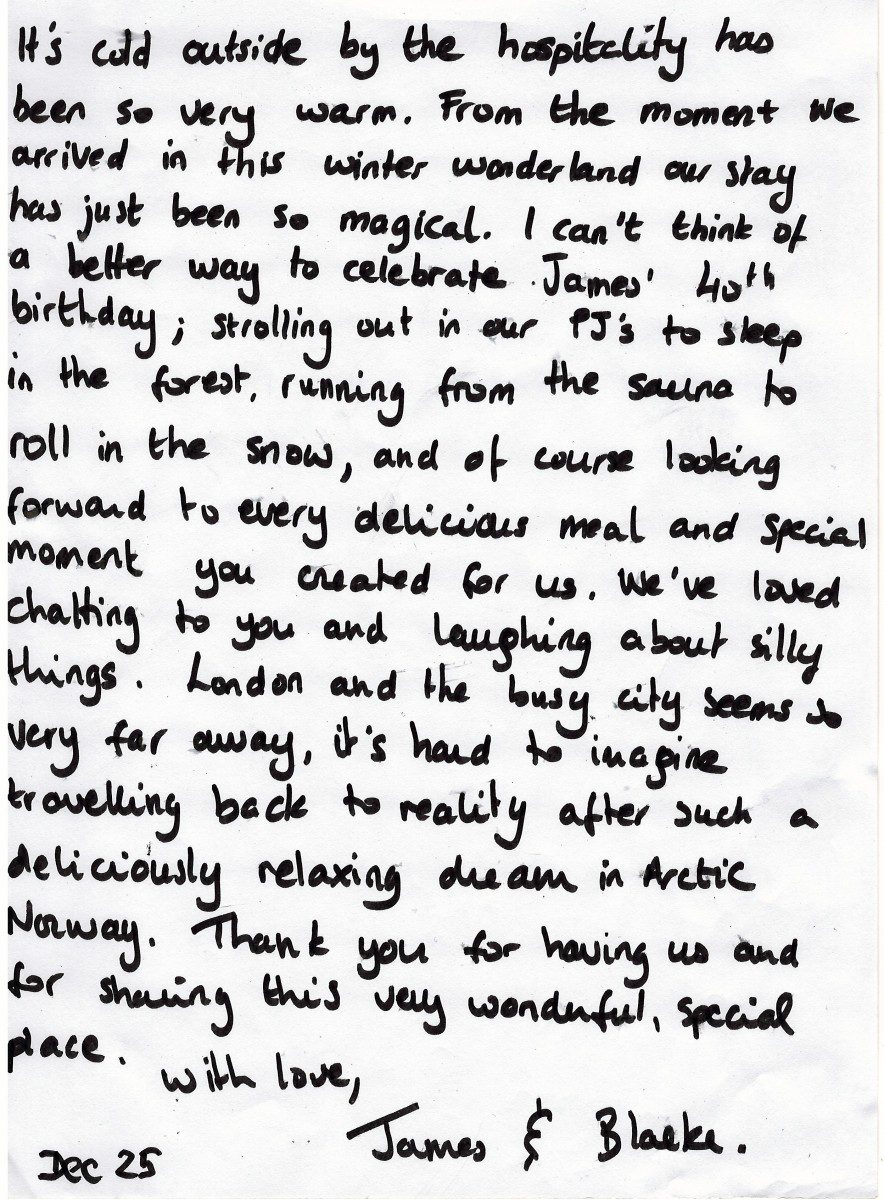 It's cold outside by the hospitality has
been so very warm. From the moment we
arrived in this winter wonderland our stay
has just been so magical. I can't think of
a better way to celebrate James' 40th
birthday; strolling out in our PJ's to sleep
in the forest, running from the sauna to
roll in the snow, and of course looking
forward to every delicious meal and special
moment you created for us. We've loved
chatting to you and laughing about silly
things. London and the busy city seems so
very far away, it's hard to imagine
travelling back to reality after such a
deliciously relaxing dream in Arctic
Norway. Thank you for having us and
for sharing this very wonderful, special
place.
With love,
James & Blaeke.
Dec 25